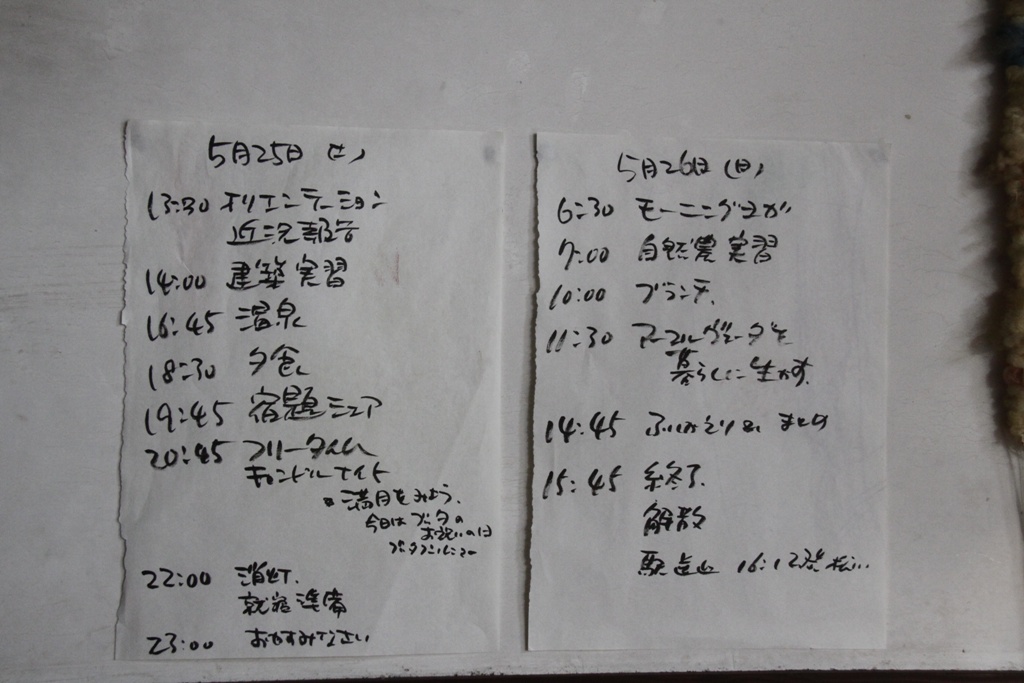 5月25日(土)
13:30 オリエンテーション
近況報告
14:00 建築実習
16:45 温泉
18:30 夕食
19:45 宿題シェア
20:45 フリータイム
キャンドルナイト
満月をみよう。
今日はブッダの
お祝いの日
22:00 消灯.
就寝準備
23:00 おやすみなさい
5月26日(日)
6:30 モーニングヨガ
7:00 自然農実習
10:00 ブランチ.
11:30 アーユルヴェーダを
暮らしに生かす.
14:45 ふりかえり & まとめ
15:45 終了.
解散
16:12発